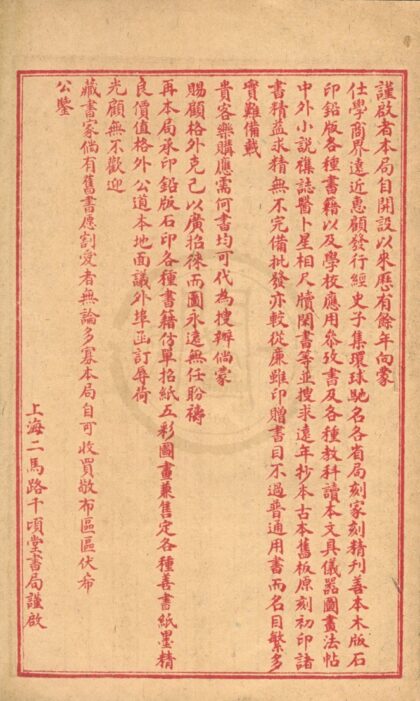 謹啟者本局自開設以來歷有餘年向蒙
仕學商界遠近惠顧發行經史子集環球馳名各省局刻家刻精刊善本木版石
印鉛版各種書籍以及學校應用叅攷書及各種教科讀本文具儀器圖畫法帖
中外小說襍誌醫卜星相尺牘閑書等並搜求遠年抄本古本舊板原刻初印諸
書精益求精無不完備批發亦較從廉雖印贈書目不過普通用書而名目繁多
實難備載
貴客樂購應需何書均可代為搜辦倘蒙
賜顧格外克己以廣招徠而圖永遠無任盼禱
再本局承印鉛版石印各種書籍仿單招紙五彩圖畫兼售定各種善書紙墨精
良價值格外公道本地面議外埠函訂辱荷
光顧無不歡迎
藏書家倘有舊書應割愛者無論多寡本局自可收買敬布區區伏布
公鑒
上海二馬路千頃堂書局謹啟